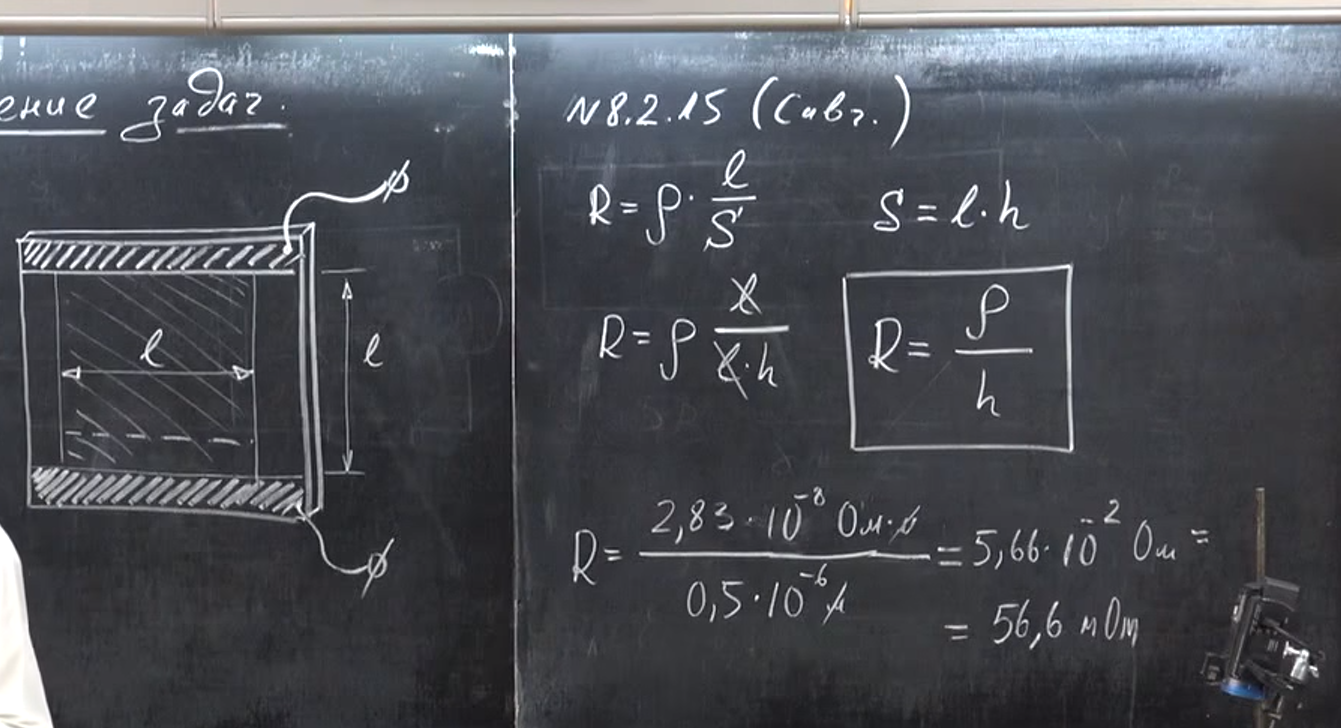 ение задач.
l
l
N8.2.15 (Савч.)
R = ρ · l/S S = l·h
R = ρ l/(l·h) R = ρ/h
R = (2,83·10⁻⁸ Ом·м)/(0,5·10⁻⁶ м) = 5,66·10⁻² Ом =
= 56,6 мОм